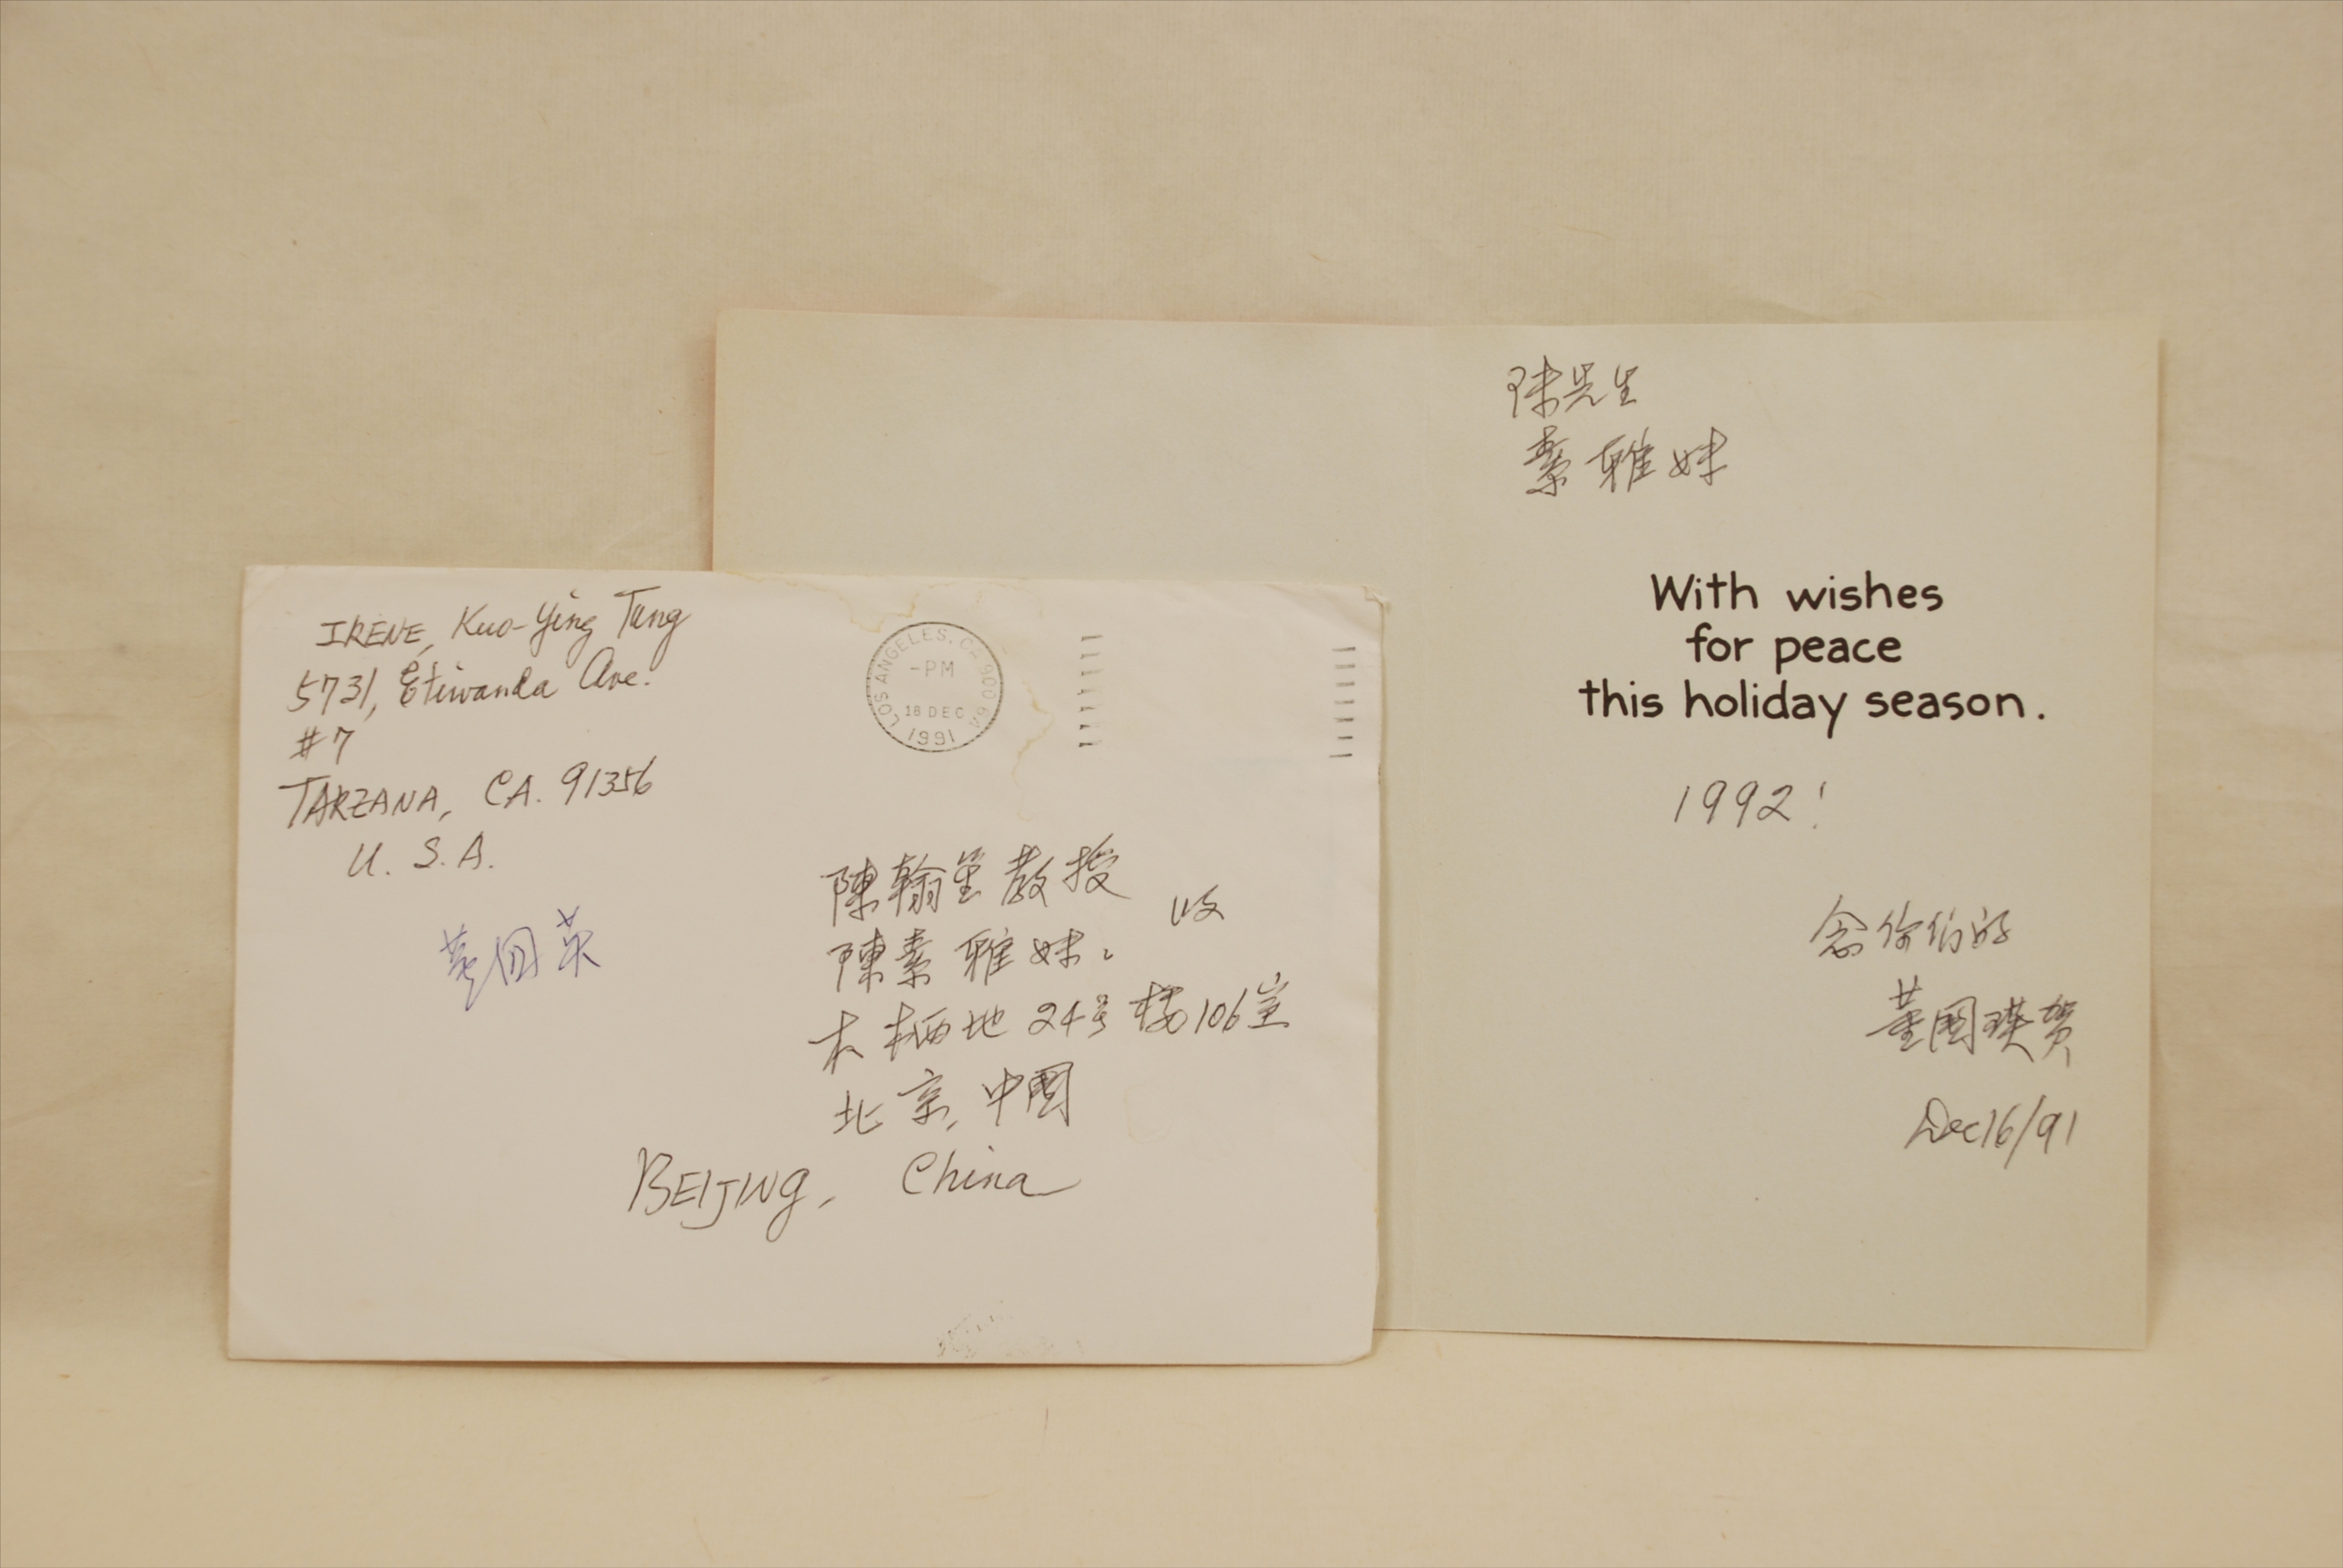 IRENE, Kuo-Ying Tung
5731, Etiwanda Ave.
#7
TARZANA, CA. 91356
U. S. A.
董国英
LOS ANGELES, CA 900
-PM
18 DEC
1991
陳翰笙教授
陳素雅妹。 收
木樨地24号楼106室
北京, 中國
BEIJING, China
陈先生
素雅妹
With wishes
for peace
this holiday season.
1992!
念你们的
董國瑛贺
Dec 16/91